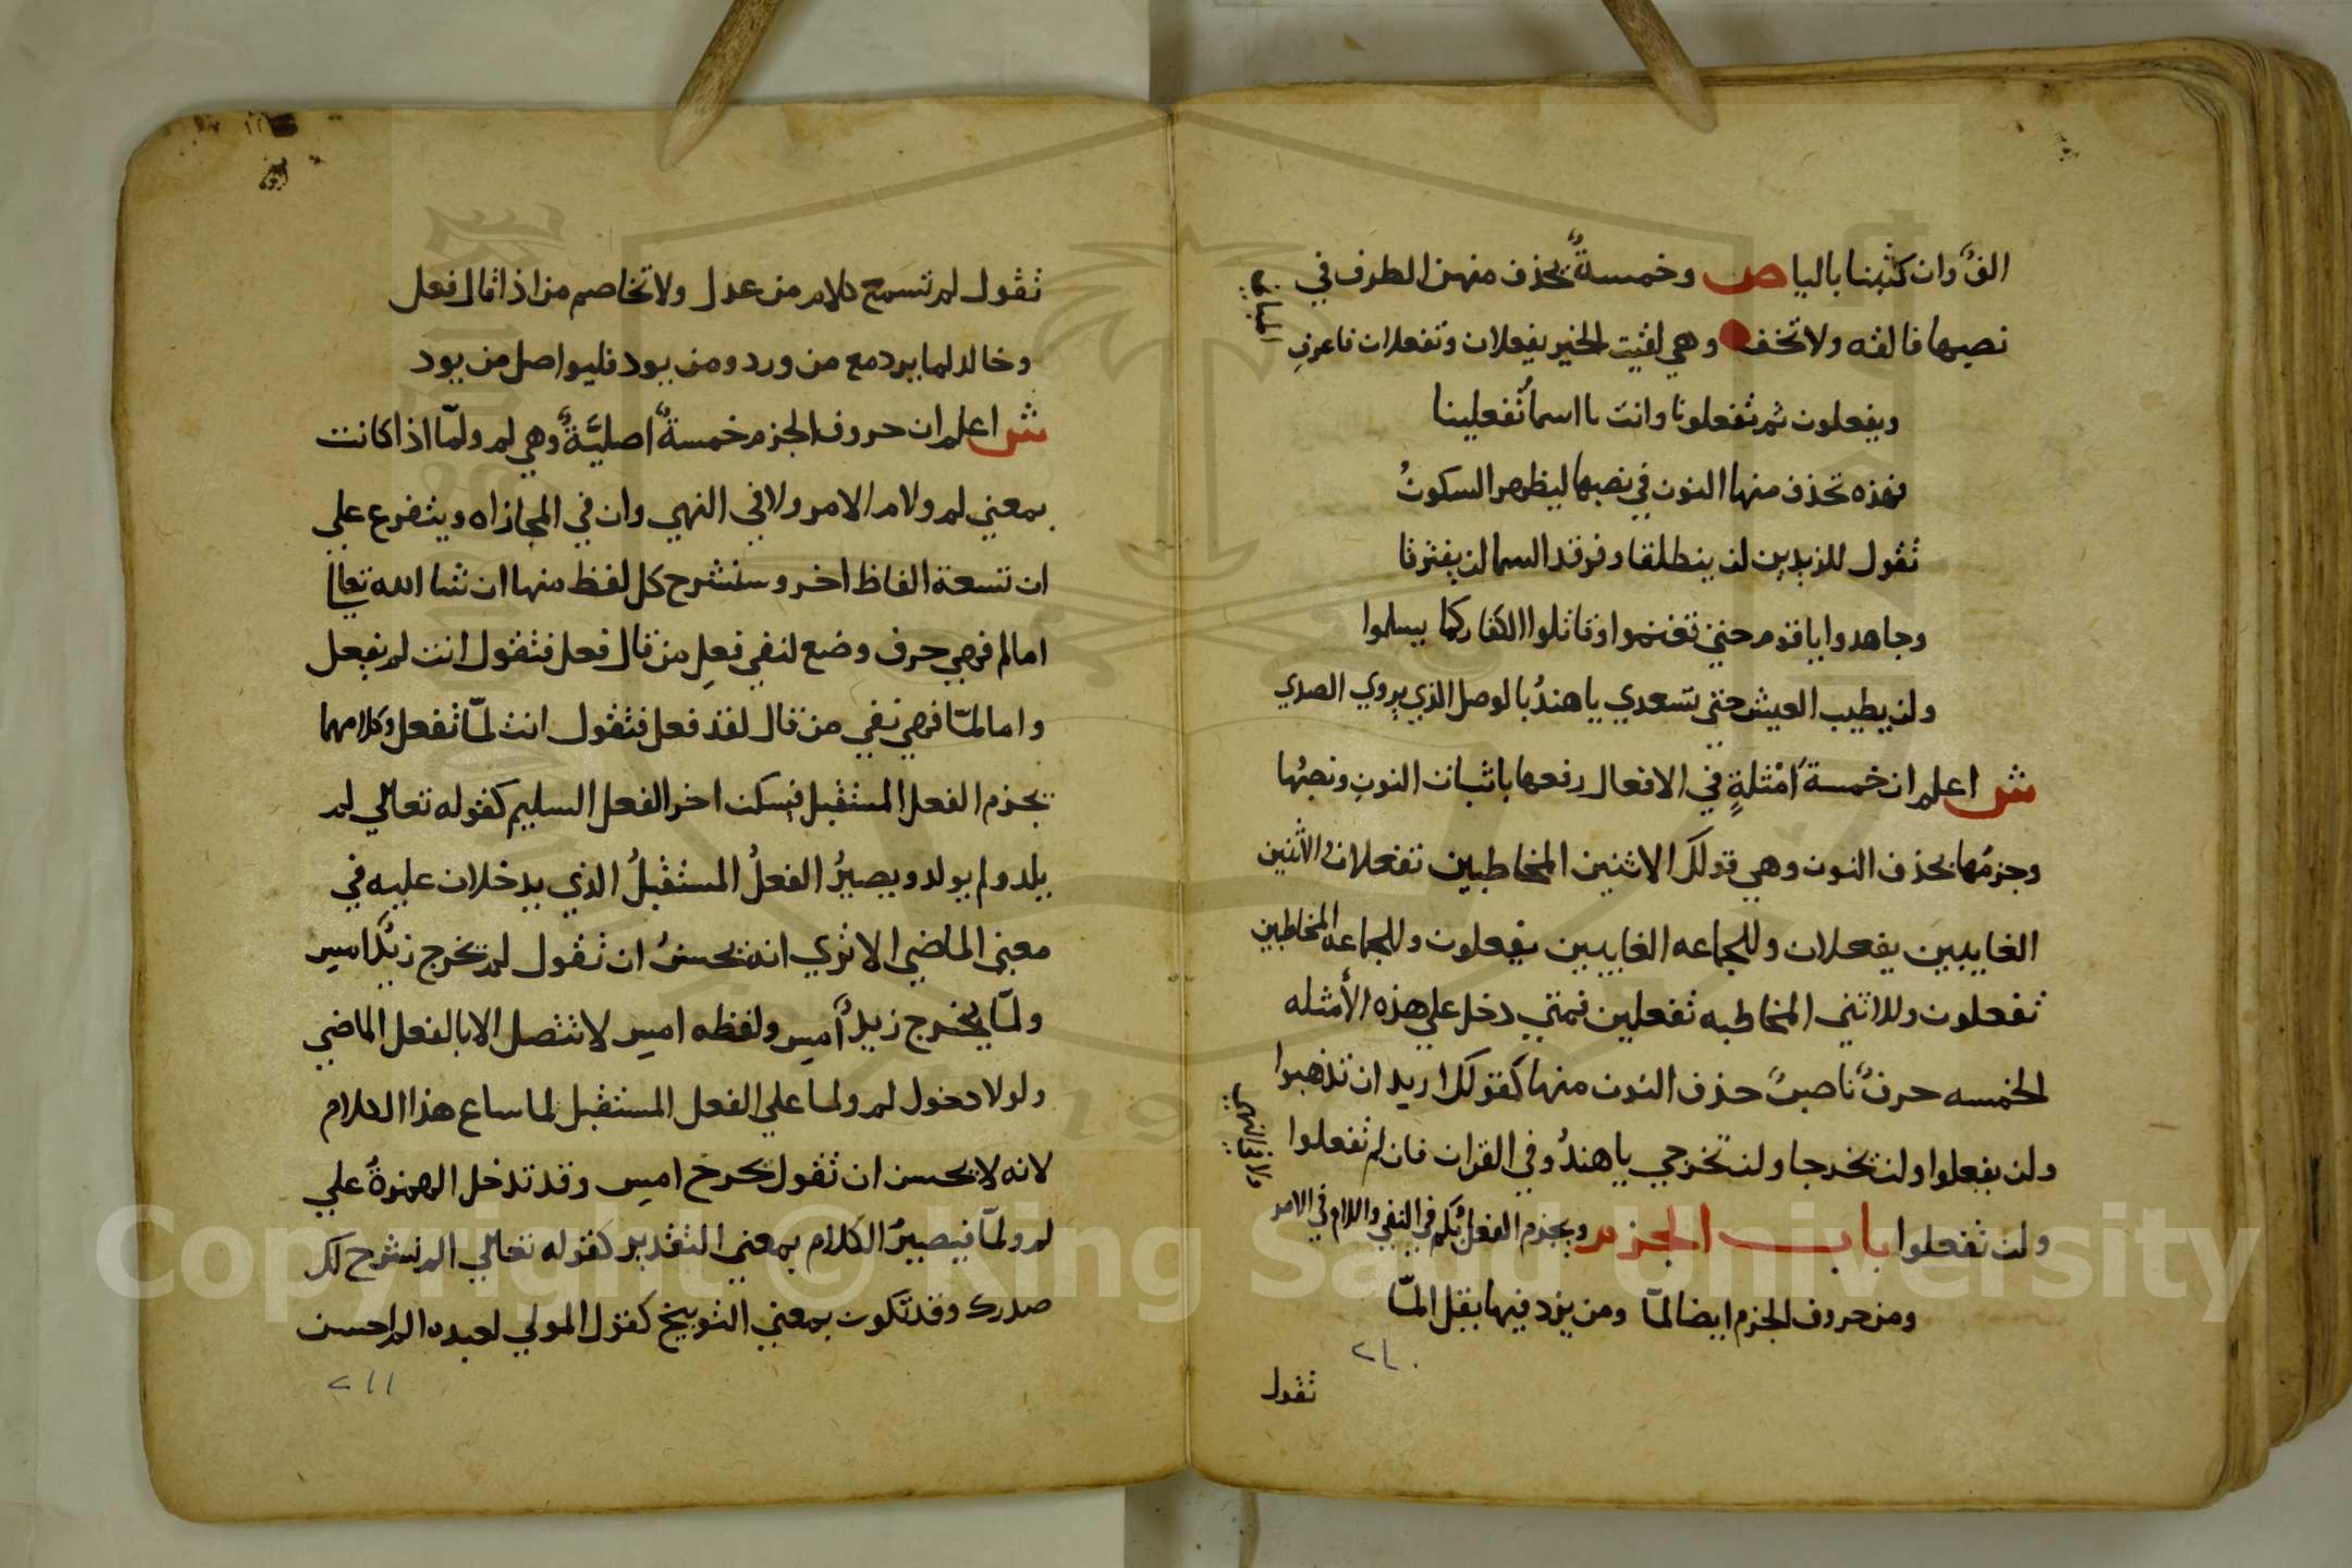 الفٌ وان كتبنا بالياء ص وخمسةٌ يحذف منهن الطرف في
نصبها فالقه ولا تخف وهي لقيت الخير يفعلان وتفعلان فاعرف
المباني
ويفعلون ثم تفعلونا وانت يا اسما تفعلينا
فهذه تحذف منها النون في نصبها ليظهر السكونُ
تقول للزيدين لن ينطلقا وفرقد السما لن يفترقا
وجاهدوا يا قوم حتى تغنموا وقاتلوا الكفار كما يسلموا
ولن يطيب العيش حتى تسعدي يا هندُ بالوصل الذي يروي الصدي
ش اعلم ان خمسة امثلةٍ في الافعال رفعها باثبات النون ونصبُها
وجزمُها بحذف النون وهي قولك الاثنين المخاطبين تفعلان والاثنين
الغايبين يفعلان وللجماعه الغايبين يفعلون وللجماعه المخاطبين
تفعلون وللانثى المخاطبه تفعلين فمتي دخل علي هذه الأمثله
الخمسه حرفٌ ناصبٌ حذف النون منها كقولك اريد ان تذهبوا
ولن يفعلوا ولن تخرجا ولن تخرجي يا هندُ وفي القران فان لم تفعلوا
ولن تفعلوا باب الجزم ويجزم الفعل بلم في النفي واللام في الامر
ومن حروف الجزم ايضا لمّا ومن يزد فيها يقل المّا
٢١٠
تقول
تقول لم تسمع كلام من عدل ولا تخاصم من اذا قال فعل
وخالد لما يرد مع من ورد ومن يود فليواصل من يود
ش اعلم ان حروف الجزم خمسةٌ اصليّةٌ وهي لم ولمّا اذا كانت
بمعني لم ولام الامر ولا في النهي وان في المجازاه ويتفرع علي
ان تسعة الفاظ اخر وسنشرح كل لفظ منها ان شا الله تعالي
اما لم فهي حرف وضع لنفي فعلِ من قال فعل فتقول انت لم يفعل
واما لمّا فهي نفي من قال لقد فعل فتقول انت لمّا تفعل وكلامهما
يجزم الفعل المستقبل فيسكن اخر الفعل السليم كقوله تعالي لم
يلد ولم يولد ويصيرُ الفعلُ المستقبلُ الذي يدخلان عليه في
معنى الماضي الا تري انه يحسنُ ان تقول لم يخرج زيدٌ امس
ولمّا يخرج زيدٌ أمس ولفظه امس لا تتصل الا بالفعل الماضي
ولولا دخول لم ولما علي الفعل المستقبل لما ساع هذا الكلام
لانه لا يحسن ان تقول يخرج امس وقد تدخل الهمزةُ علي
لم ولمّا فيصيرُ الكلام بمعني التقدير كقوله تعالي الم نشرح لك
صدرك وقد تكون بمعني التوبيخ كقول المولي لعبده الم احسن
٢١١
Copyright © King Saud University